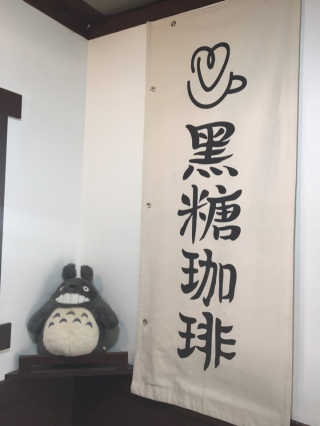 黑糖珈琲